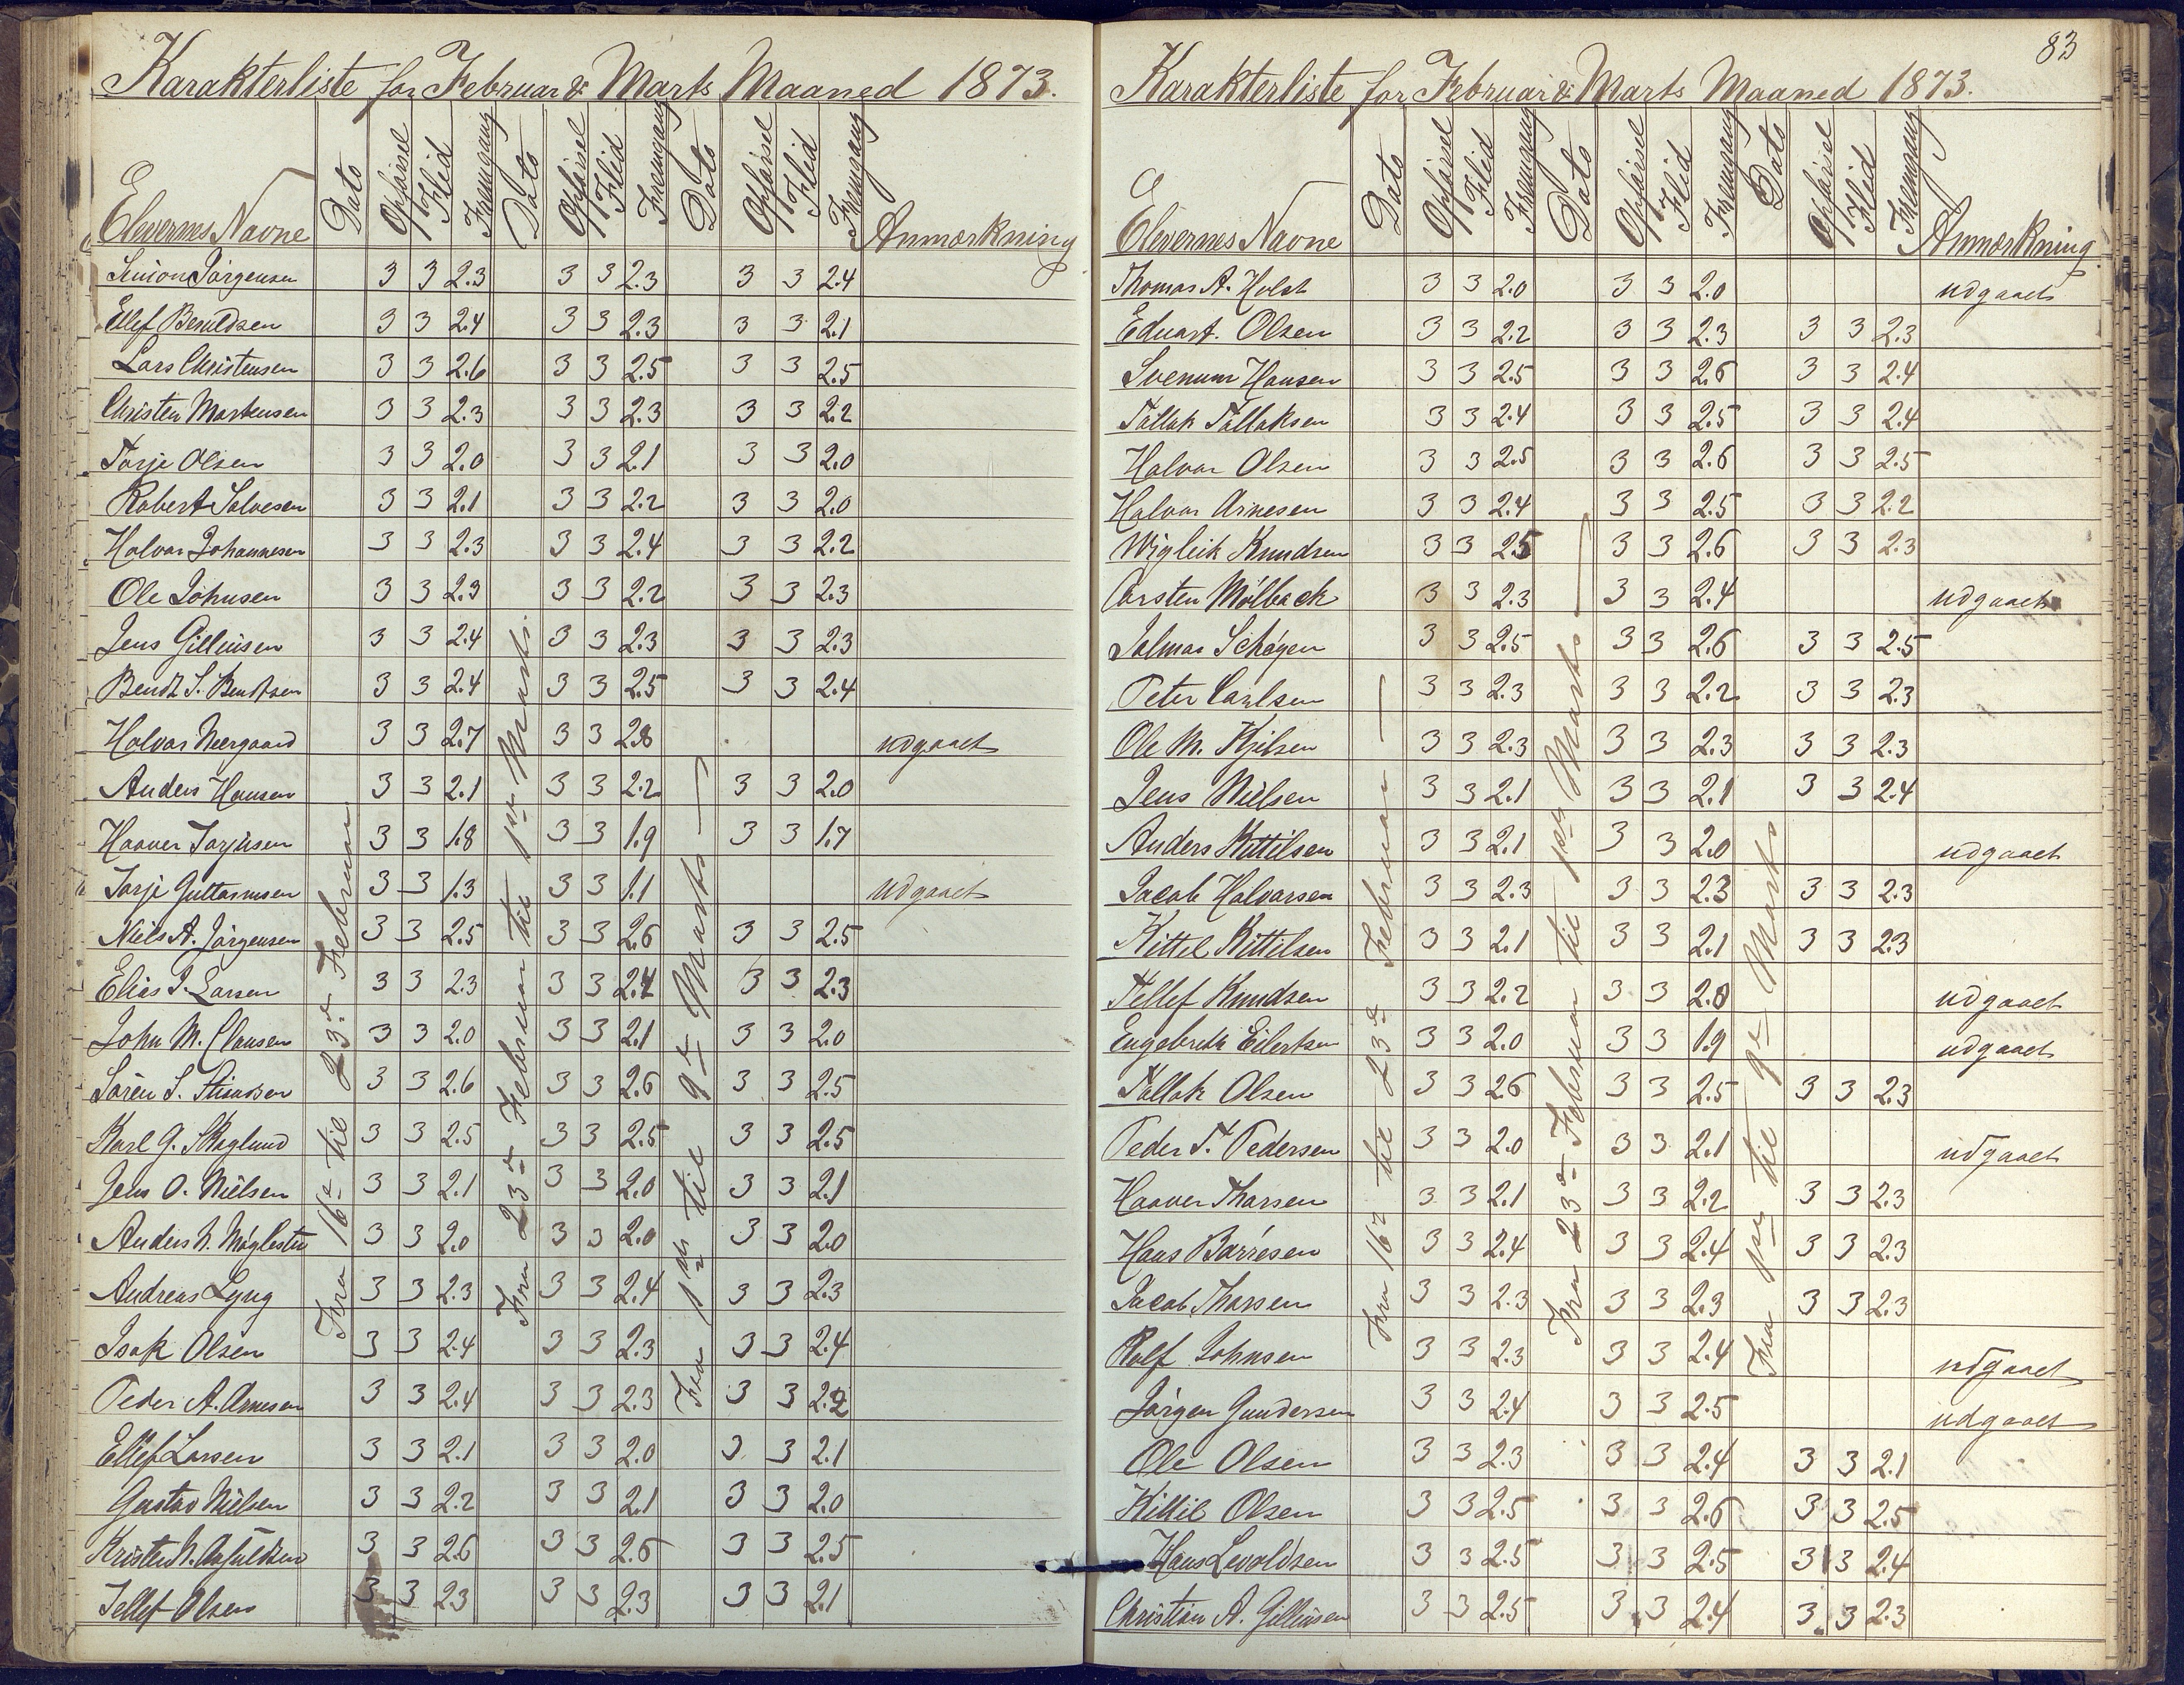 Karakterliste for Februar & Marts Maaned 1873.
Elevernes Navne Dato Opførsel Flid Fremgang Dato Opførsel Flid Fremgang Dato Opførsel Flid Fremgang Anmærkning
Fra 16de til 23de Februar
Fra 23de Februar til 1ste Marts.
Fra 1ste til 9de Marts
Simon Jörgensen 3 3 2.3 3 3 2.3 3 3 2.4
Ellef Bentdsen 3 3 2.4 3 3 2.3 3 3 2.1
Lars Christensen 3 3 2.6 3 3 2.5 3 3 2.5
Christen Mortensen 3 3 2.3 3 3 2.3 3 3 2.2
Torje Olsen 3 3 2.0 3 3 2.1 3 3 2.0
Robert Salvesen 3 3 2.1 3 3 2.2 3 3 2.0
Halvor Johannesen 3 3 2.3 3 3 2.4 3 3 2.2
Ole Johnsen 3 3 2.3 3 3 2.2 3 3 2.3
Jens Gilleusen 3 3 2.4 3 3 2.3 3 3 2.3
Bendt S. Bendtsen 3 3 2.4 3 3 2.5 3 3 2.4
Halvor Neergaard 3 3 2.7 3 3 2.8 udgaaet
Anders Hansen 3 3 2.1 3 3 2.2 3 3 2.0
Haaver Torjusen 3 3 1.8 3 3 1.9 3 3 1.7
Torje Guttormsen 3 3 1.3 3 3 1.1 udgaaet
Niels A. Jörgensen 3 3 2.5 3 3 2.6 3 3 2.5
Elias J. Larsen 3 3 2.3 3 3 2.4 3 3 2.3
John M. Clausen 3 3 2.0 3 3 2.1 3 3 2.0
Sören S. 3 3 2.6 3 3 2.6 3 3 2.5
Karl G. Skoglund 3 3 2.5 3 3 2.5 3 3 2.5
Jens O. Nielsen 3 3 2.1 3 3 2.0 3 3 2.1
Anders N. Möglestu 3 3 2.0 3 3 2.0 3 3 2.0
Andreas Lyng 3 3 2.3 3 3 2.4 3 3 2.3
Isak Olsen 3 3 2.4 3 3 2.3 3 3 2.4
Peder A. Arnesen 3 3 2.4 3 3 2.3 3 3 2.2
Ellef Larsen 3 3 2.1 3 3 2.0 3 3 2.1
Gustav Nielsen 3 3 2.2 3 3 2.1 3 3 2.0
Kristen N. 3 3 2.6 3 3 2.6 3 3 2.5
Tellef Olsen 3 3 2.3 3 3 2.3 3 3 2.1
83
Karakterliste for Februar & Marts Maaned 1873.
Elevernes Navne Dato Opførsel Flid Fremgang Dato Opførsel Flid Fremgang Dato Opførsel Flid Fremgang Anmærkning
Fra 16de til 23de Februar
Fra 23de Februar til 1ste Marts
Fra 1ste til 9de Marts
Thomas A. Holst 3 3 2.0 3 3 2.0 udgaaet
Eduart. Olsen 3 3 2.2 3 3 2.3 3 3 2.3
Svenum Hansen 3 3 2.5 3 3 2.6 3 3 2.4
Tallak Tallaksen 3 3 2.4 3 3 2.5 3 3 2.4
Halvor Olsen 3 3 2.5 3 3 2.6 3 3 2.5
Halvor Arnesen 3 3 2.4 3 3 2.5 3 3 2.2
Wigleik Knudsen 3 3 2.5 3 3 2.6 3 3 2.3
Carsten Mölback 3 3 2.3 3 3 2.4 udgaaet
Jalmar Schøyen 3 3 2.5 3 3 2.6 3 3 2.5
Peter Carlsen 3 3 2.3 3 3 2.2 3 3 2.3
Ole M. Kjilsen 3 3 2.3 3 3 2.3 3 3 2.3
Jens Nielsen 3 3 2.1 3 3 2.1 3 3 2.4
Anders Kittilsen 3 3 2.1 3 3 2.0 udgaaet
Jacob Halvorsen 3 3 2.3 3 3 2.3 3 3 2.3
Kittel Kittilsen 3 3 2.1 3 3 2.1 3 3 2.3
Tellef Knudsen 3 3 2.2 3 3 2.0 udgaaet
Engebreth Eilertsen 3 3 2.0 3 3 1.9 udgaaet
Tallak Olsen 3 3 2.6 3 3 2.5 3 3 2.3
Peder T. Pedersen 3 3 2.0 3 3 2.1 udgaaet
Haaver Tharsen 3 3 2.1 3 3 2.2 3 3 2.3
Hans Barrésen 3 3 2.4 3 3 2.4 3 3 2.3
Jacob Tharsen 3 3 2.3 3 3 2.3 3 3 2.3
Rolf Johnsen 3 3 2.3 3 3 2.4 udgaaet
Jörgen Gundersen 3 3 2.4 3 3 2.5 udgaaet
Ole Olsen 3 3 2.3 3 3 2.4 3 3 2.1
Kittil Olsen 3 3 2.5 3 3 2.6 3 3 2.5
Hans Levoldsen 3 3 2.5 3 3 2.5 3 3 2.4
Christian A. Gilleusen 3 3 2.5 3 3 2.4 3 3 2.3